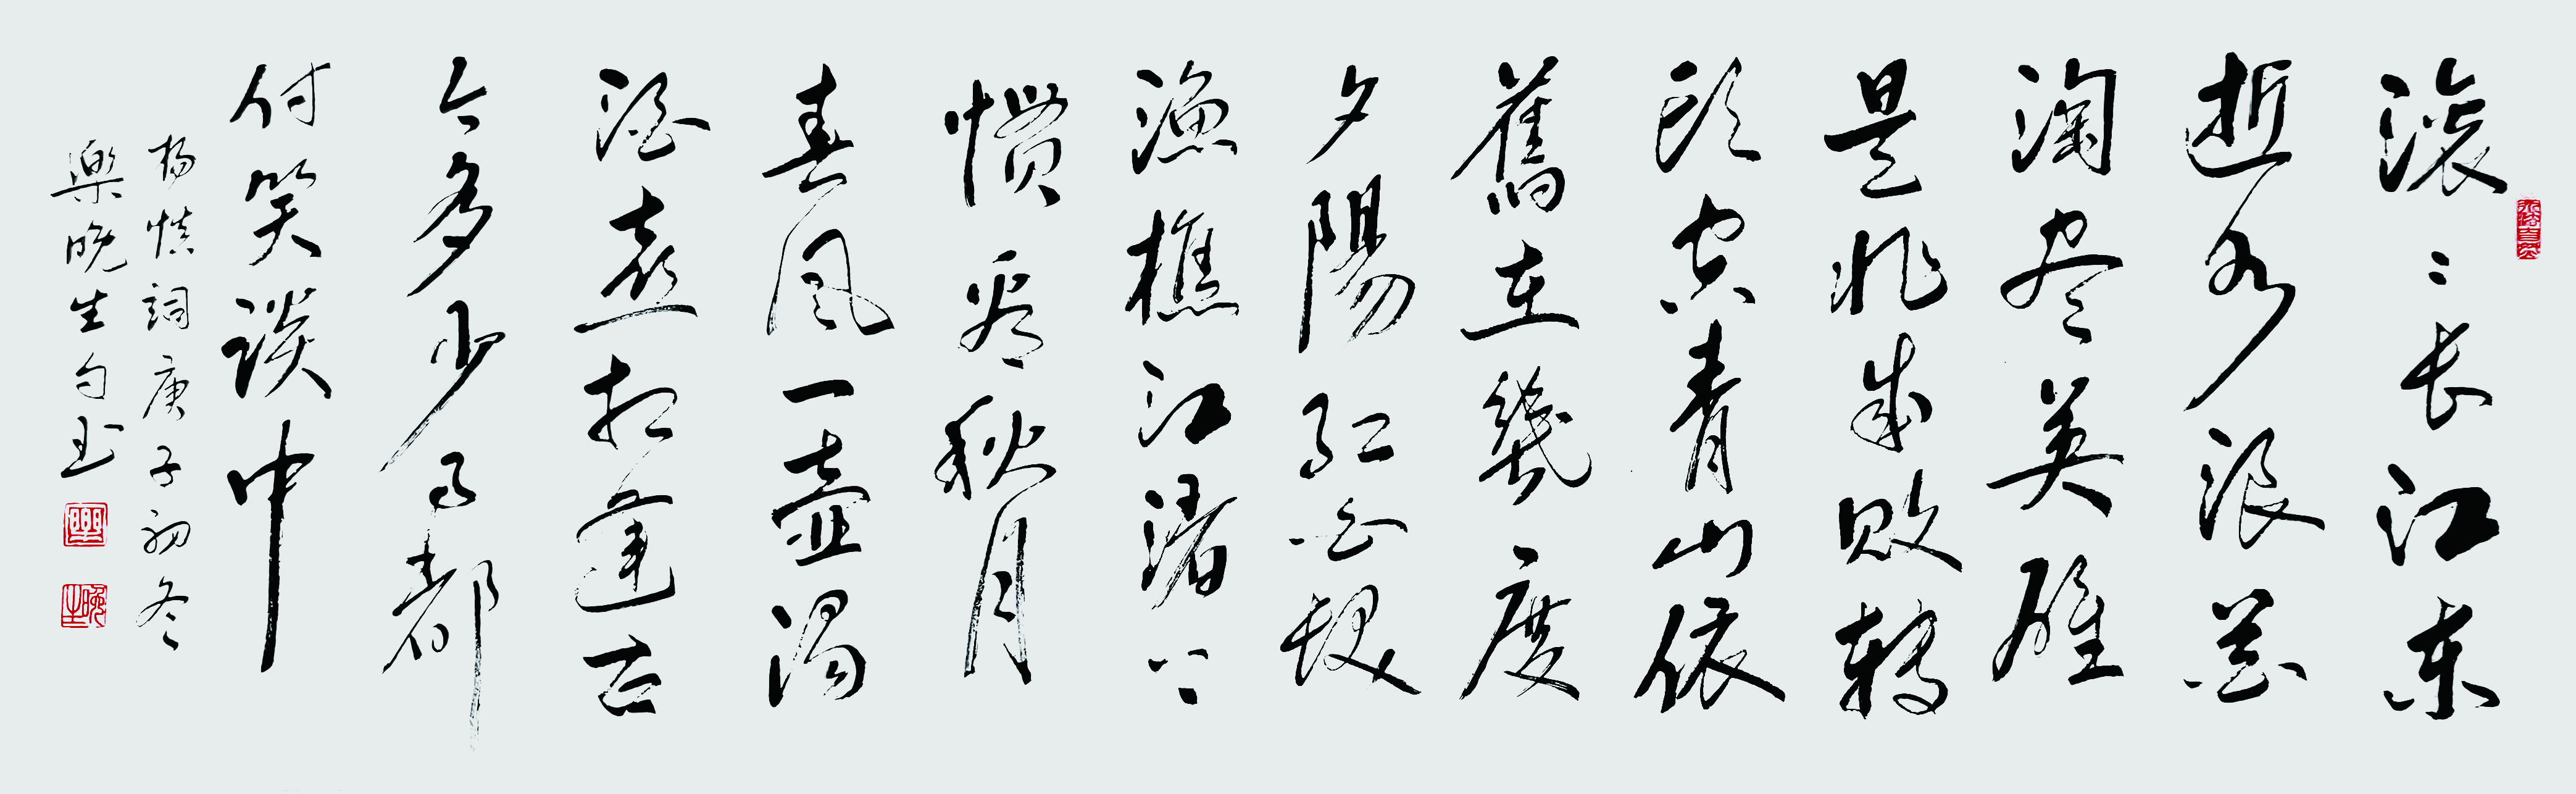 滚〻长江东
逝水浪花
淘尽英雄
是非成败转
头空青山依
舊在幾度
夕陽红白发
渔樵江渚上
惯看秋月
春风一壶濁
酒喜相逢古
今多少事都
付笑谈中
杨慎詞庚子初冬
樂晚生书
晚生